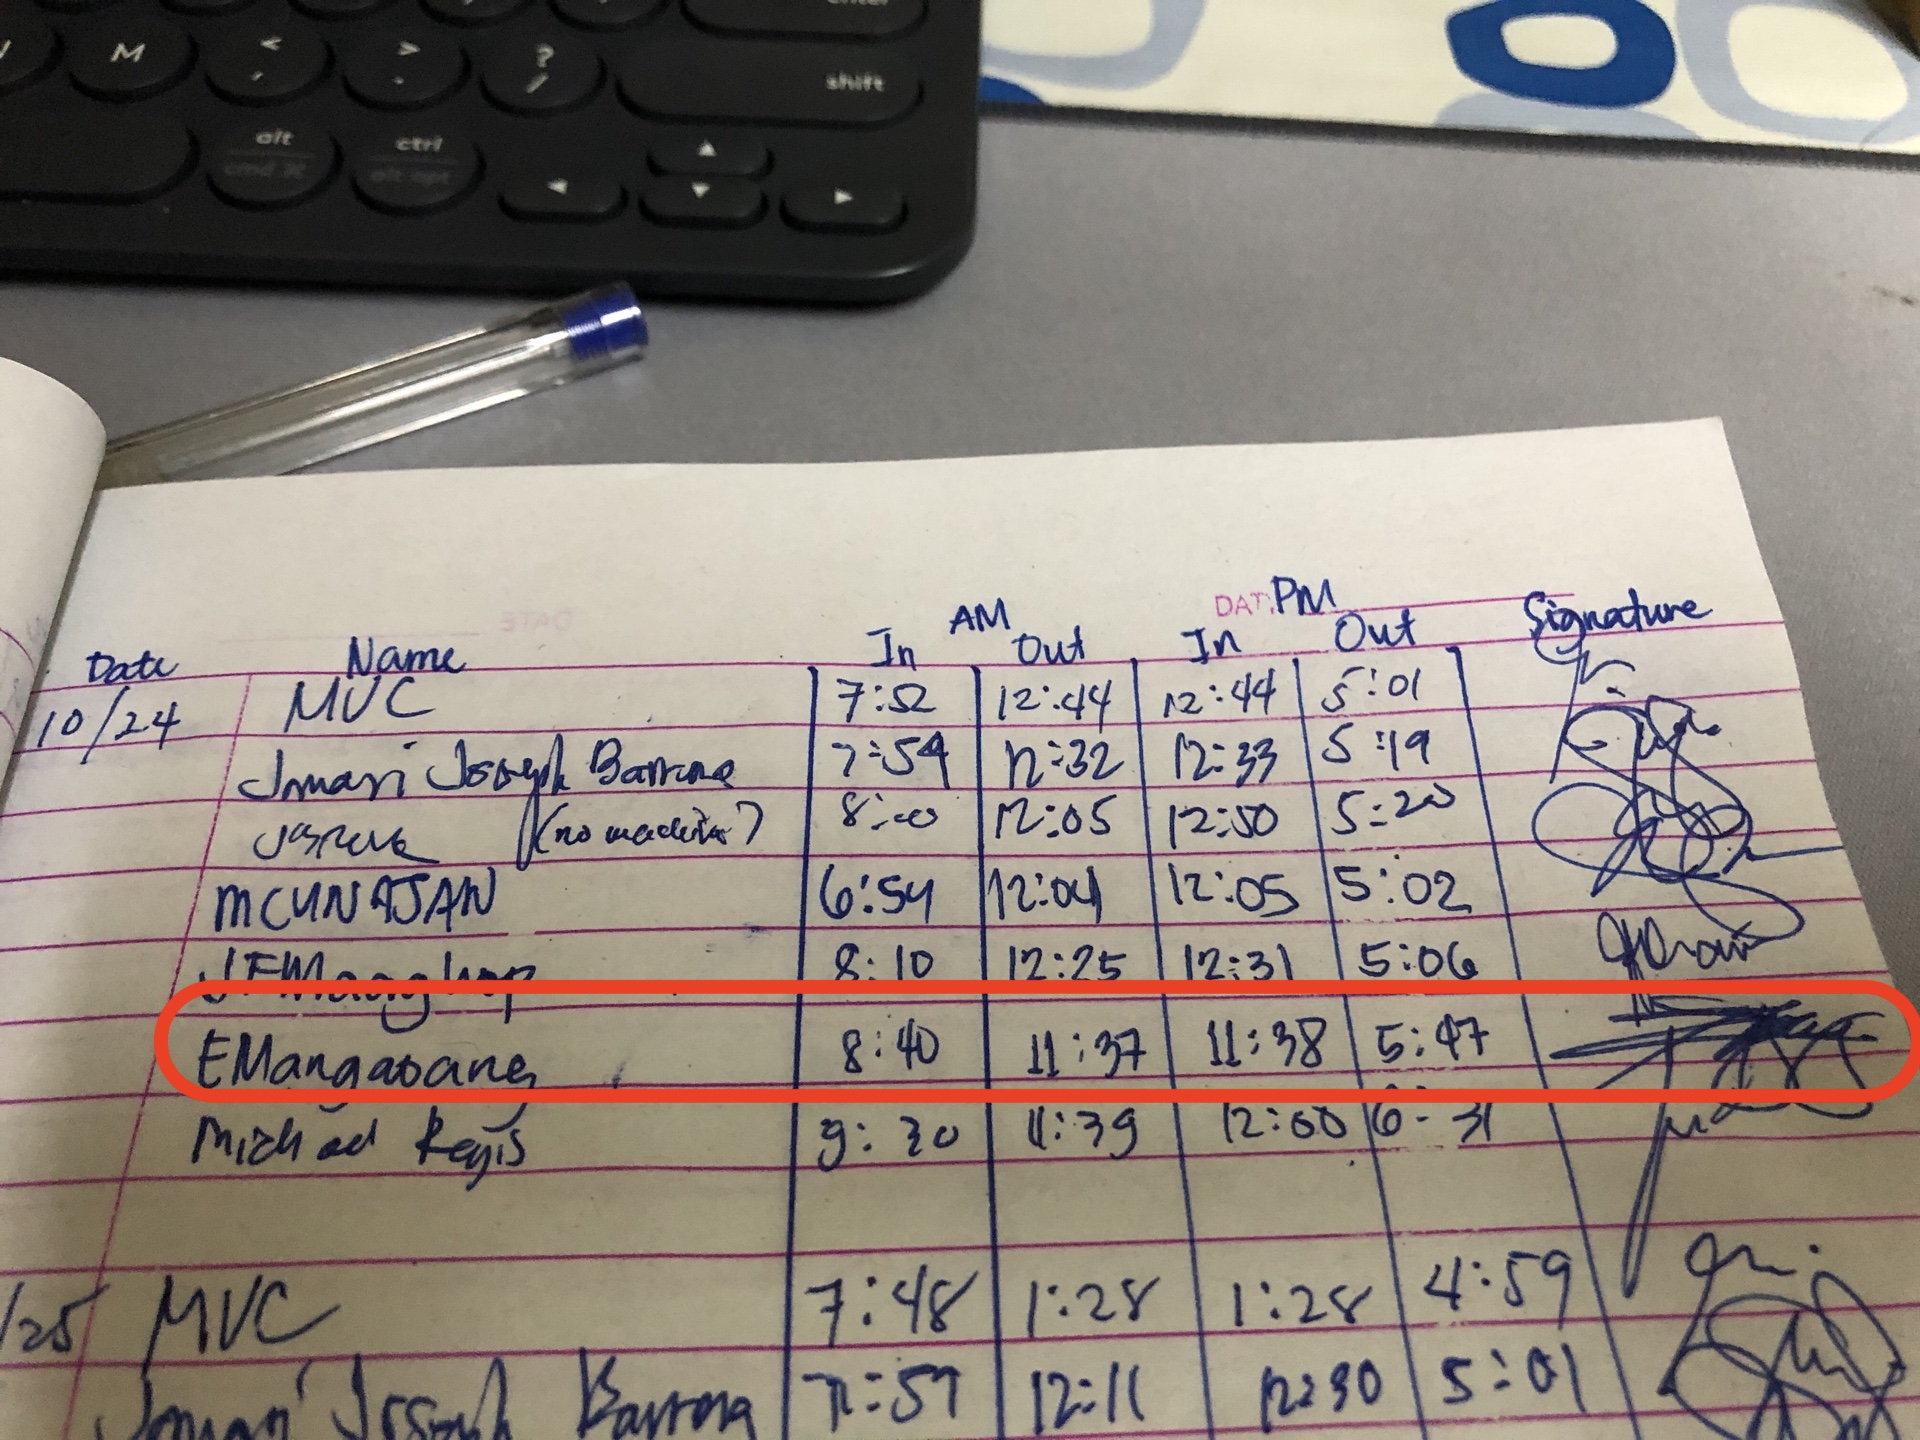 enter
M < , > . ? / shift
alt ctrl
cmd ⌘ alt opt
▲
◄ ▼ ►
DATE
AM DAT PM
Date Name In Out In Out Signature
10/24 MVC 7:52 12:44 12:44 5:01
Jomari Joseph Barrona 7:54 12:32 12:33 5:19
(no machine) 8:00 12:05 12:50 5:20
MCUNAJAN 6:54 12:04 12:05 5:02
8:10 12:25 12:31 5:06
EMangaoang 8:40 11:37 11:38 5:47
Michael Regis 9:30 11:39 12:00 6-31
/25 MVC 7:48 1:28 1:28 4:59
Jomari Joseph Barrona 7:57 12:11 12:30 5:01